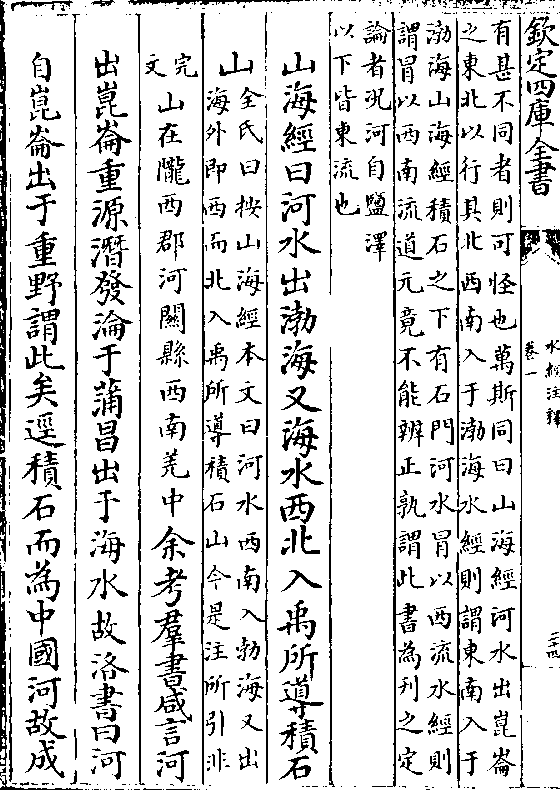 欽定四庫全書
水經注釋
卷一
二十四
有甚不同者則可怪也萬斯同曰山海經河水出崑崙
之東北以行其北西南入于渤海水經則謂東南入于
渤海山海經積石之下有石門河水冒以西流水經則
謂冒以西南流道元竟不能辨正孰謂此書為刋之定
論者況河自鹽澤
以下皆東流也
山海經曰河水出渤海又海水西北入禹所導積石
山全氏曰按山海經本文曰河水西南入勃海又出
海外即西而北入禹所導積石山今是注所引非
完
文山在隴西郡河關縣西南羌中余考羣書咸言河
出崑崙重源潛發淪于蒲昌出于海水故洛書曰河
自崑崙出于重野謂此矣逕積石而為中國河故成